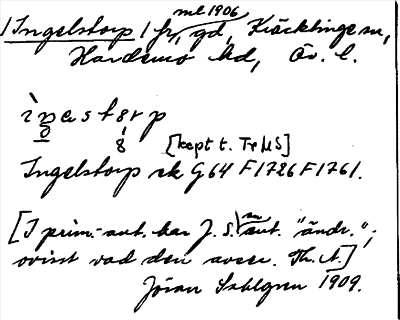 ml 1906
/Ingelstorp/ fr, gd, Kräcklinge sn,
Hardemo hd, Ör. l.
ìŋəstərp
8
[kopt t. Tr MS]
Ingelstorp sk G64 F1726 F1761.
[I prim.-ant. har J. S. sn ant. "ändr.";
ovisst vad den avser. Th. A.]
Jöran Sahlgren 1909.